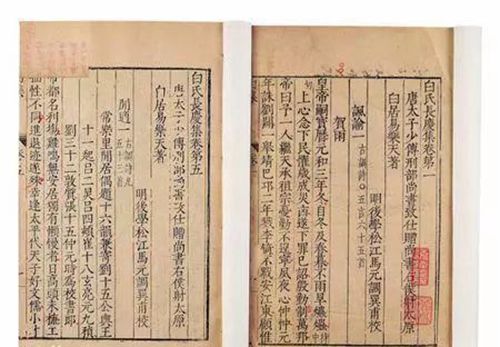 白氏長慶集卷第一
唐太子少傅刑部尚書致仕贈尚書右僕射太原
白居易樂天著
明後學松江馬元調巽甫校
諷諭一 古調詩 五言 六十五首
賀雨
皇帝嗣寶曆元和三年冬自冬及春暮不雨旱爞爞
上心念下民懼歲成災凶遂下罪己詔殷勤告萬邦
帝曰予一人繼天承祖宗憂勤不遑寧夙夜心忡忡元
年誅劉闢一舉靖巴邛二年戮李錡不戰安江東顧惟
白氏長慶集卷第五
唐太子少傅刑部尚書致仕贈尚書右僕射太原
白居易樂天著
明後學松江馬元調巽甫校
閒適一 古調詩凡五十三首
常樂里閒居偶題十六韻兼寄劉十五公輿王
十一起呂二炅呂四熲崔十八玄亮元九稹
劉三十二敦質張十五仲元時爲校書郎
帝都名利場雞鳴無安居獨有懶慢者日高頭未梳工
拙性不同進退跡遂殊幸逢太平代天子好文儒小才